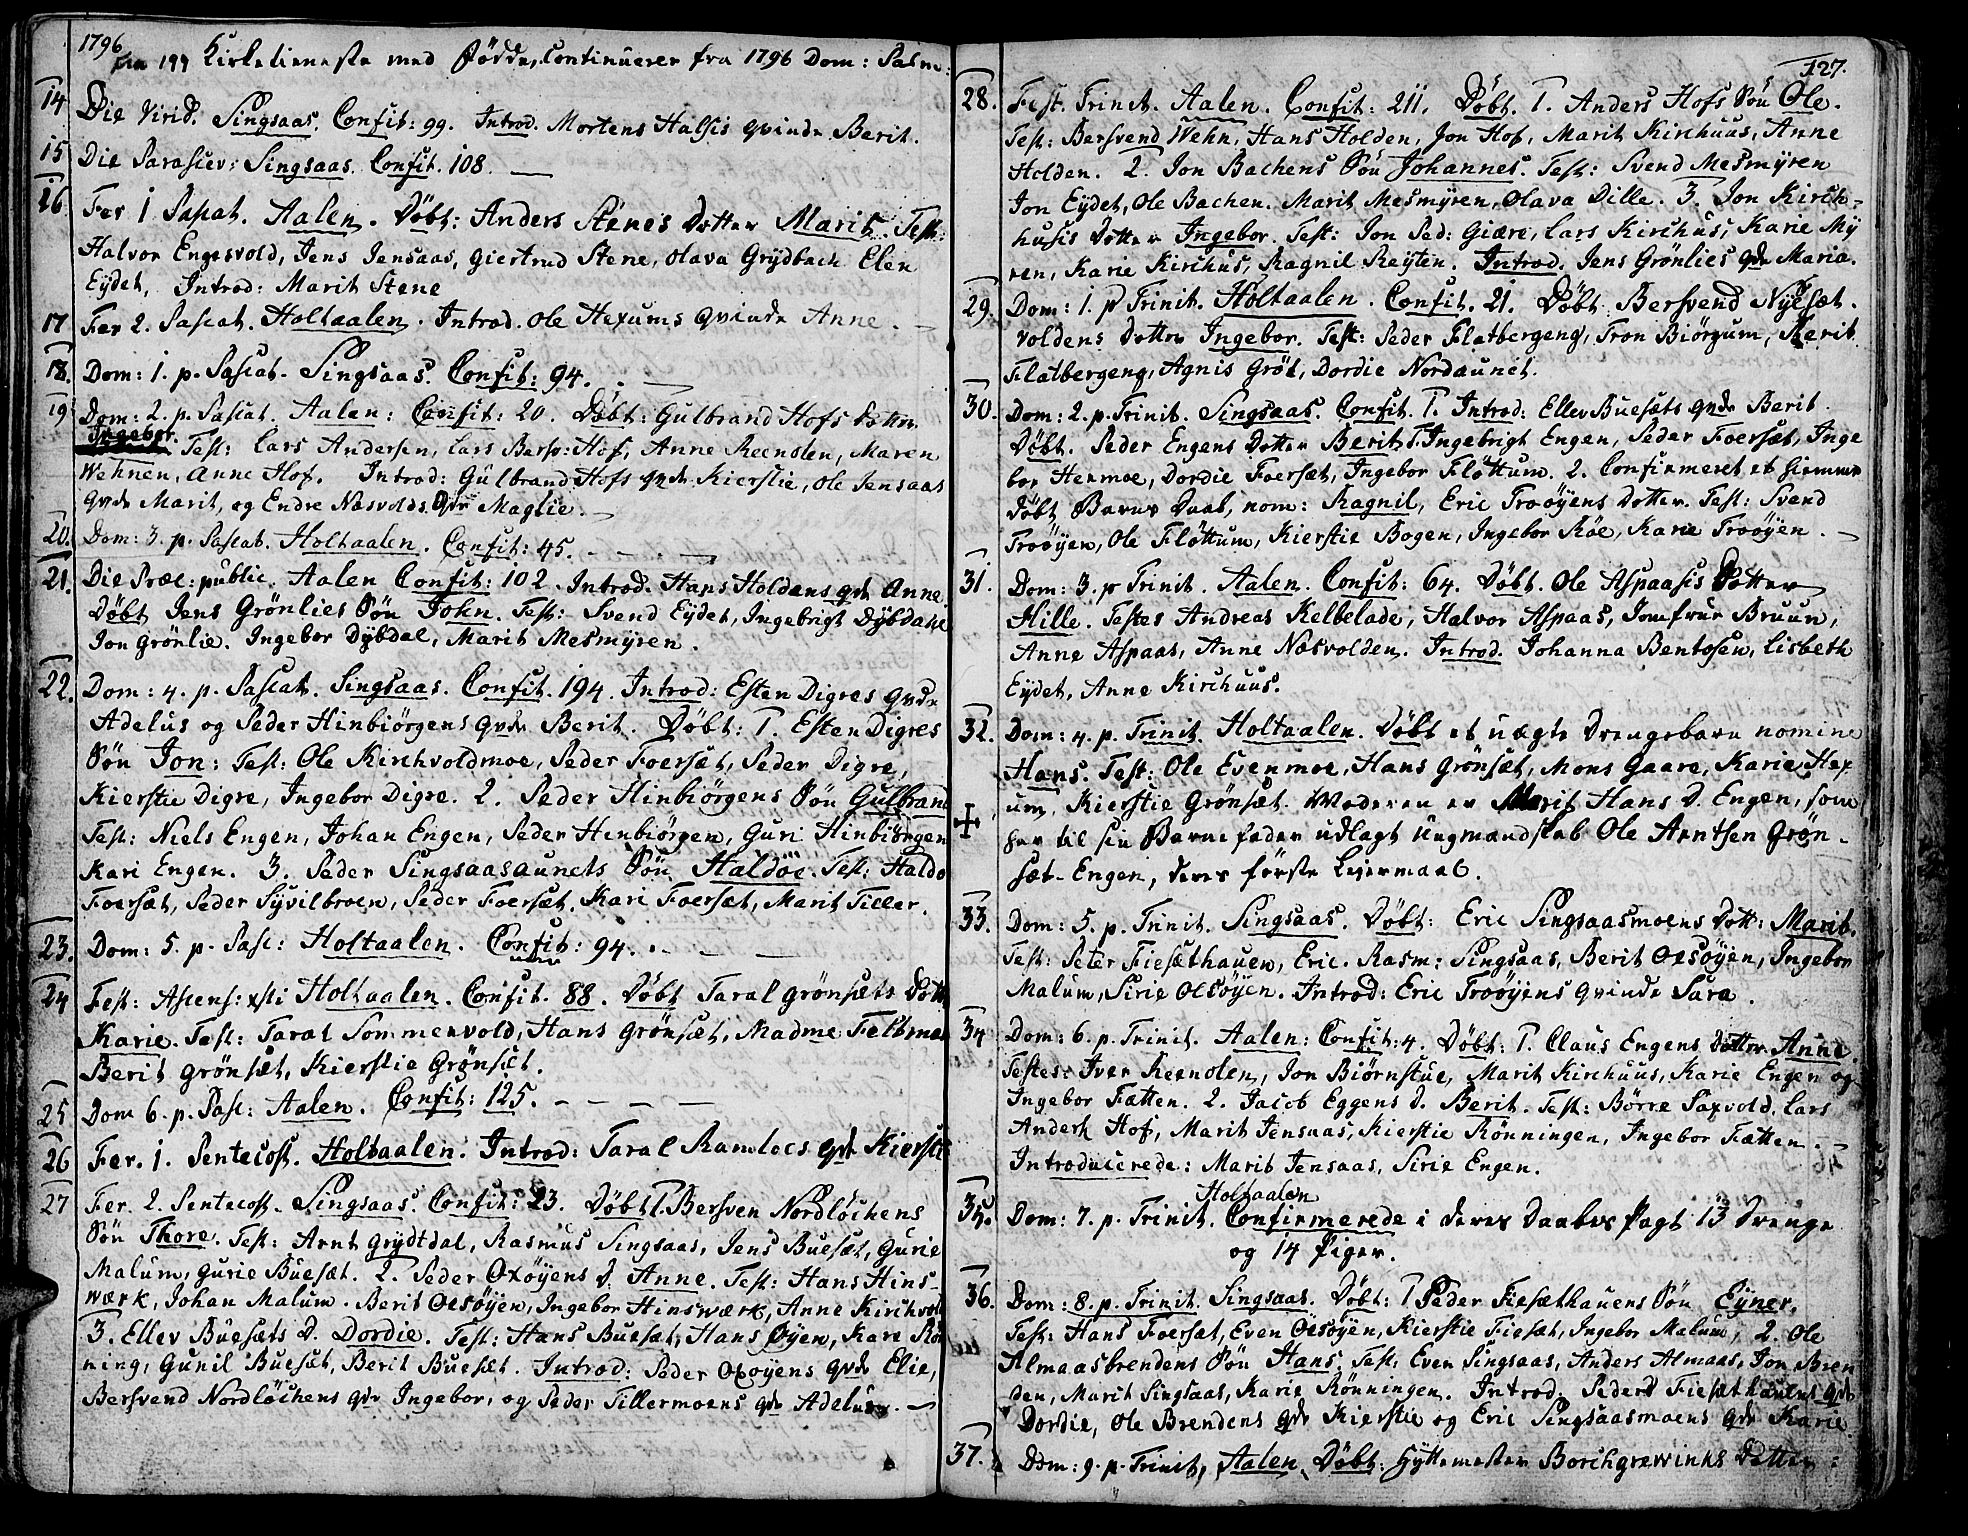 1796
Kirketieneste med Födde, Continuerer fra 1796 Dom: Palm:
14 Die Virid. Singsaas. Confit: 99. Introd. Mortens Halsis qvinde Berit.
15 Die Parasiev: Singsaas. Confit. 108. —
16 Fer 1 Pascat. Aalen. Döbt: Anders Stenes Dotter Marit. Test:
Halvor Engesvold, Jens Jensaas, Giertrud Stene, Olava Grydbach Elen
Eydet, Introd: Marit Stene
17 Fer 2. Pascat. Holtaalen. Introd. Ole Hexums qvinde Anne. —
18. Dom: 1. p. Pascat. Singsaas. Confit: 94. —
19 Dom: 2. p. Pascat. Aalen: Confit: 20. Döbt: Gulbrand Hofs Dotter
Ingebor. Test: Lars Andersen, Lars Bersv: Hof, Anne Reenolen, Maren
Wehnen, Anne Hof. Introd: Gulbrand Hofs qvde Kierstie, Ole Jensaas
Qvde Marit, og Endre Næsvolds Qvde Maglie. —
20. Dom: 3. p. Pascat. Holtaalen. Confit: 45. — — —
21. Die Præc: public. Aalen Confit: 102. Introd. Hans Holdens qvde Anne.
Döbt Jens Grönlies Sön John. Test: Svend Eydet, Ingebrigt Dybdahl
Jon Grönlie. Ingebor Dybdal, Marit Mesmyren.
22. Dom: 4. p. Pascat. Singsaas. Confit. 194. Introd: Esten Digres qvde
Adelus og Peder Hinbiörgens qvde Berit. Döbt: 1. Esten Digres
Sön Jon: Test: Ole Kirchvoldmoe, Peder Foersæt, Peder Digre,
Kierstie Digre, Ingebor Digre. 2. Peder Hinbiörgens Sön Gulbrand
Test: Niels Engen, Johan Engen, Peder Henbiörgen, Guri Hinbiörgen
Kari Engen. 3. Peder Singsaasaunets Sön Haldöe. Test: Haldo
Foersæt, Peder Syvilbroen, Peder Foersæt, Kari Foersæt, Marit Tiller.
23. Dom: 5. p. Pasc: Holtaalen. Confit: 94. — — —
24 Fest: Ascens: xsti Holtaalen. Confit. 88. Döbt Taral Grönsæts Dott
Karie. Test: Taral Sommervold, Hans Grönsæt, Madme Feltman
Berit Grönsæt, Kierstie Grönsæt.
25 Dom 6. p. Pasc: Aalen. Confit: 125. — — — —
26 Fer. 1. Pentecost. Holtaalen. Introd: Taral Ramloes qvde Kierstie
27 Fer. 2. Pentecost. Singsaas. Confit: 23. Döbt 1. Bersven Nordlöchens
Sön Thore. Test: Arnt Grydtdal, Rasmus Singsaas, Jens Buesæt, Gurie
Malum, Gurie Buesæt. 2. Peder Oxöyens D. Anne. Test: Hans Hins-
wærk, Johan Malum. Berit Oesöyen, Ingebor Hinswærk, Anne Kirchvol
3. Ellev Buesæts D. Dordie. Test: Hans Buesæt, Hans Öyen, Kari Rön
ning, Gunil Buesæt, Berit Buesæt. Introd: Peder Oxoyens qvde Elie,
Bersvend Nordlöchens qvde Ingebor, og Peder Tillermoens qvde Adelus. —
127.
28. Fest. Trinit. Aalen. Confit: 211. Döbt. 1. Anders Hofs Sön Ole.
Test: Bersvend Wehn, Hans Holden, Jon Hof, Marit Kirchuus, Anne
Holden. 2. Jon Bachens Sön Johannes. Test: Svend Mesmyren
Jon Eydet, Ole Bachen. Marit Mesmyren, Olava Dille. 3. Jon Kirch-
husis Dotter Ingebor. Test: Jon Ped: Giære, Lars Kirchus, Karie My
ren, Karie Kirchus, Ragnil Reyten. Introd. Jens Grönlies qvde Maria.
29. Dom: 1. p Trinit. Holtaalen. Confit. 21. Döbt Bersvend Nyesæt-
voldens Dotter Ingebor. Test: Peder Flatbergeng, Tron Biörgum, Berit
Flatbergeng, Agnis Gröt, Dordie Nordaunet.
30. Dom: 2. p. Trinit. Singsaas. Confit. 1. Introd: Ellev Buesæts qvde Berit.
Döbt. Peder Engens Dotter Berit T. Ingebrigt Engen, Peder Foersæt, Inge
bor Henmoe, Dordie Foersæt, Ingebor Flöttum. 2. Confirmeret et hiemme
döbt Barns Daab, nom: Ragnil, Eric Troöyens Dotter. Test: Svend
Troöyen, Ole Flöttum, Kierstie Bogen, Ingebor Röe, Karie Troöyen. —
31. Dom: 3. p Trinit. Aalen. Confit: 64. Döbt. Ole Aspaasis Dotter
Hille. Testes Andreas Kelbelade, Halvor Aspaas, Jomfrue Bruun,
Anne Aspaas, Anne Næsvolden. Introd. Johanna Bentosen, Lisbeth
Eydet, Anne Kirchuus.
32. Dom: 4. p. Trinit. Holtaalen. Döbt et uægte Drengebarn nomine
Hans. Test: Ole Evenmoe, Hans Grönsæt, Mons Gaare, Karie Hex
um, Kierstie Grönsæt. Moderen er Marit Hans D. Engen, som
har til sin Barnefader udlagt Ungmandskab Ole Arntsen Grön-
sæt-Engen, deres förste Leiermaal.
33. Dom: 5. p. Trinit. Singsaas. Döbt: Eric Singsaasmoens Dott: Marit.
Test: Peter Fiesæthauen, Eric. Rasm: Singsaas, Berit Oesöyen, Ingebor
Malum, Sirie Oesöyen. Introd: Eric Troöyens Qvinde Sara.
34 Dom: 6. p. Trinit. Aalen: Confit: 4. Döbt: 1. Claus Engens Dotter Anne
Testes: Iver Reenolen, Jon Biörnstue, Marit Kirchuus, Karie Engen og
Ingebor Fætten. 2. Jacob Eggens D. Berit. Test: Börre Saxvold, Lars
Anders Hof, Marit Jensaas, Kierstie Rönningen, Ingebor Fætten. —
Introducerede: Marit Jensaas, Sirie Engen.
35. Dom: 7. p. Trinit. Holtaalen Confirmerede i deres Daabes Pagt 13 Drenge
og 14 Piger.
36. Dom: 8. p. Trinit. Singsaas. Döbt: 1 Peder Fiesæthauens Sön Eyner.
Test: Hans Foersæt, Even Oesöyen, Kierstie Fiesæt, Ingebor Malum, 2. Ole
Almaasbrendens Sön Hans. Test: Even Singsaas, Anders Almaas, Jon Bren
den, Marit Singsaas, Karie Rönningen. Introd. Peder Fiesæthauens qvde
Dordie, Ole Brendens qvde Kierstie og Eric Singsaasmoens qvde Karie
37. Dom: 9. p. Trinit, Aalen. Döbt: Hyttemester Borchgrewinks Dotter: